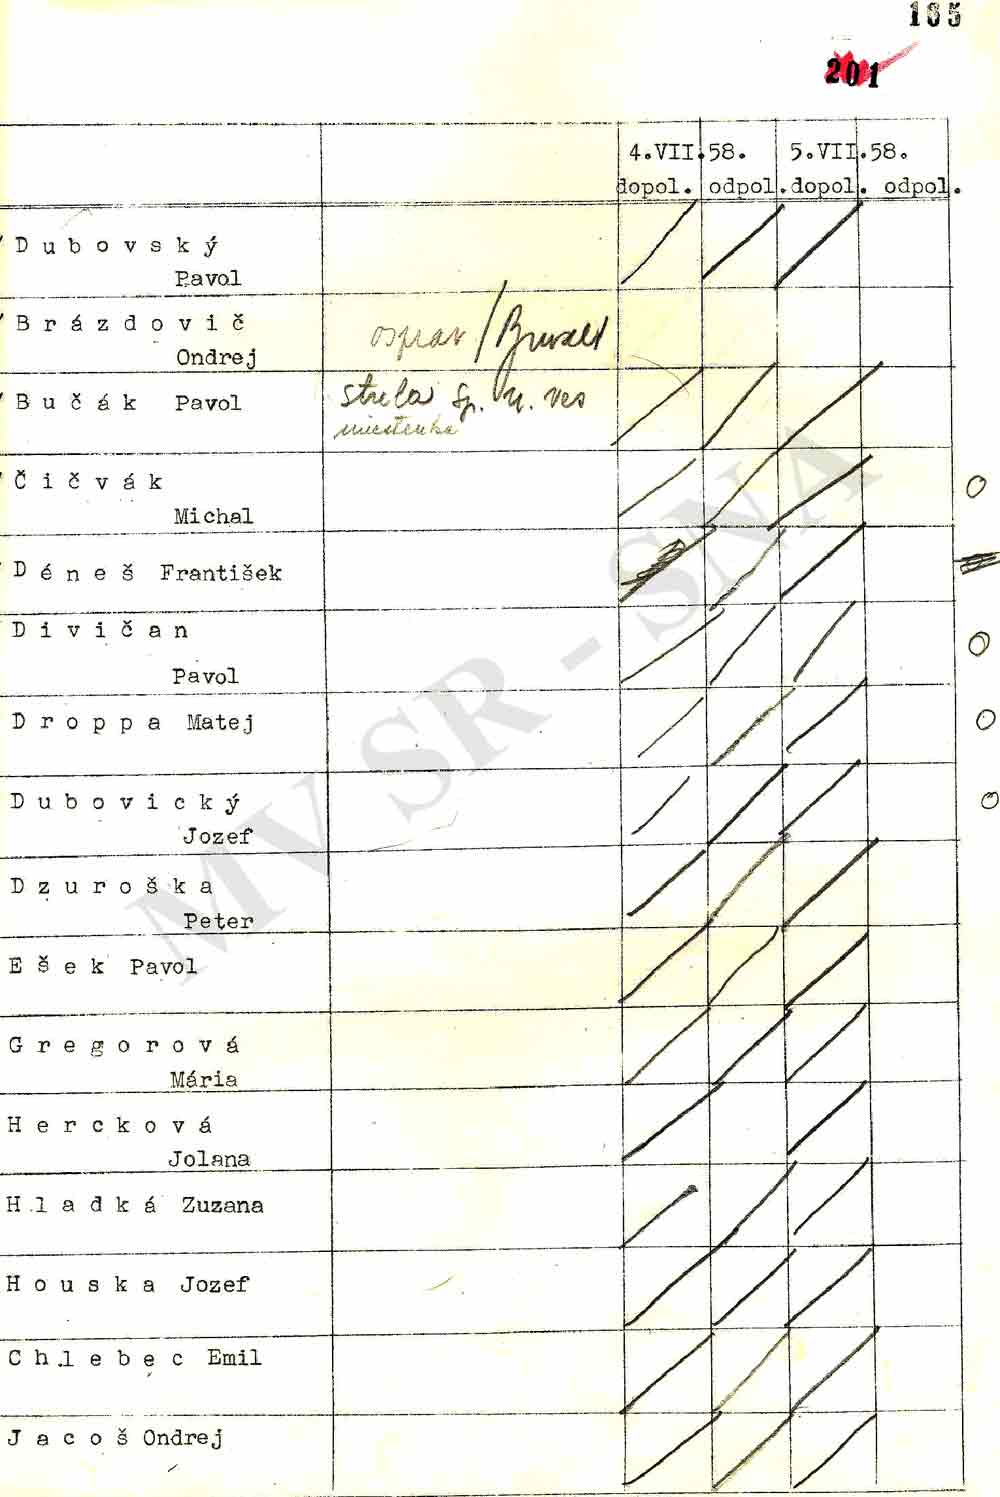 165
201
4.VII.58. 5.VII.58.
dopol. odpol. dopol. odpol.
Dubovský
Pavol
Brázdovič
Ondrej
osprav
Bučák Pavol
strela Sp. n. ves
miestenka
Čičvák
Michal
Déneš František
Divičan
Pavol
Droppa Matej
Dubovický
Jozef
Dzuroška
Peter
Ešek Pavol
Gregorová
Mária
Hercková
Jolana
Hladká Zuzana
Houska Jozef
Chlebec Emil
Jacoš Ondrej
MV SR - SNA